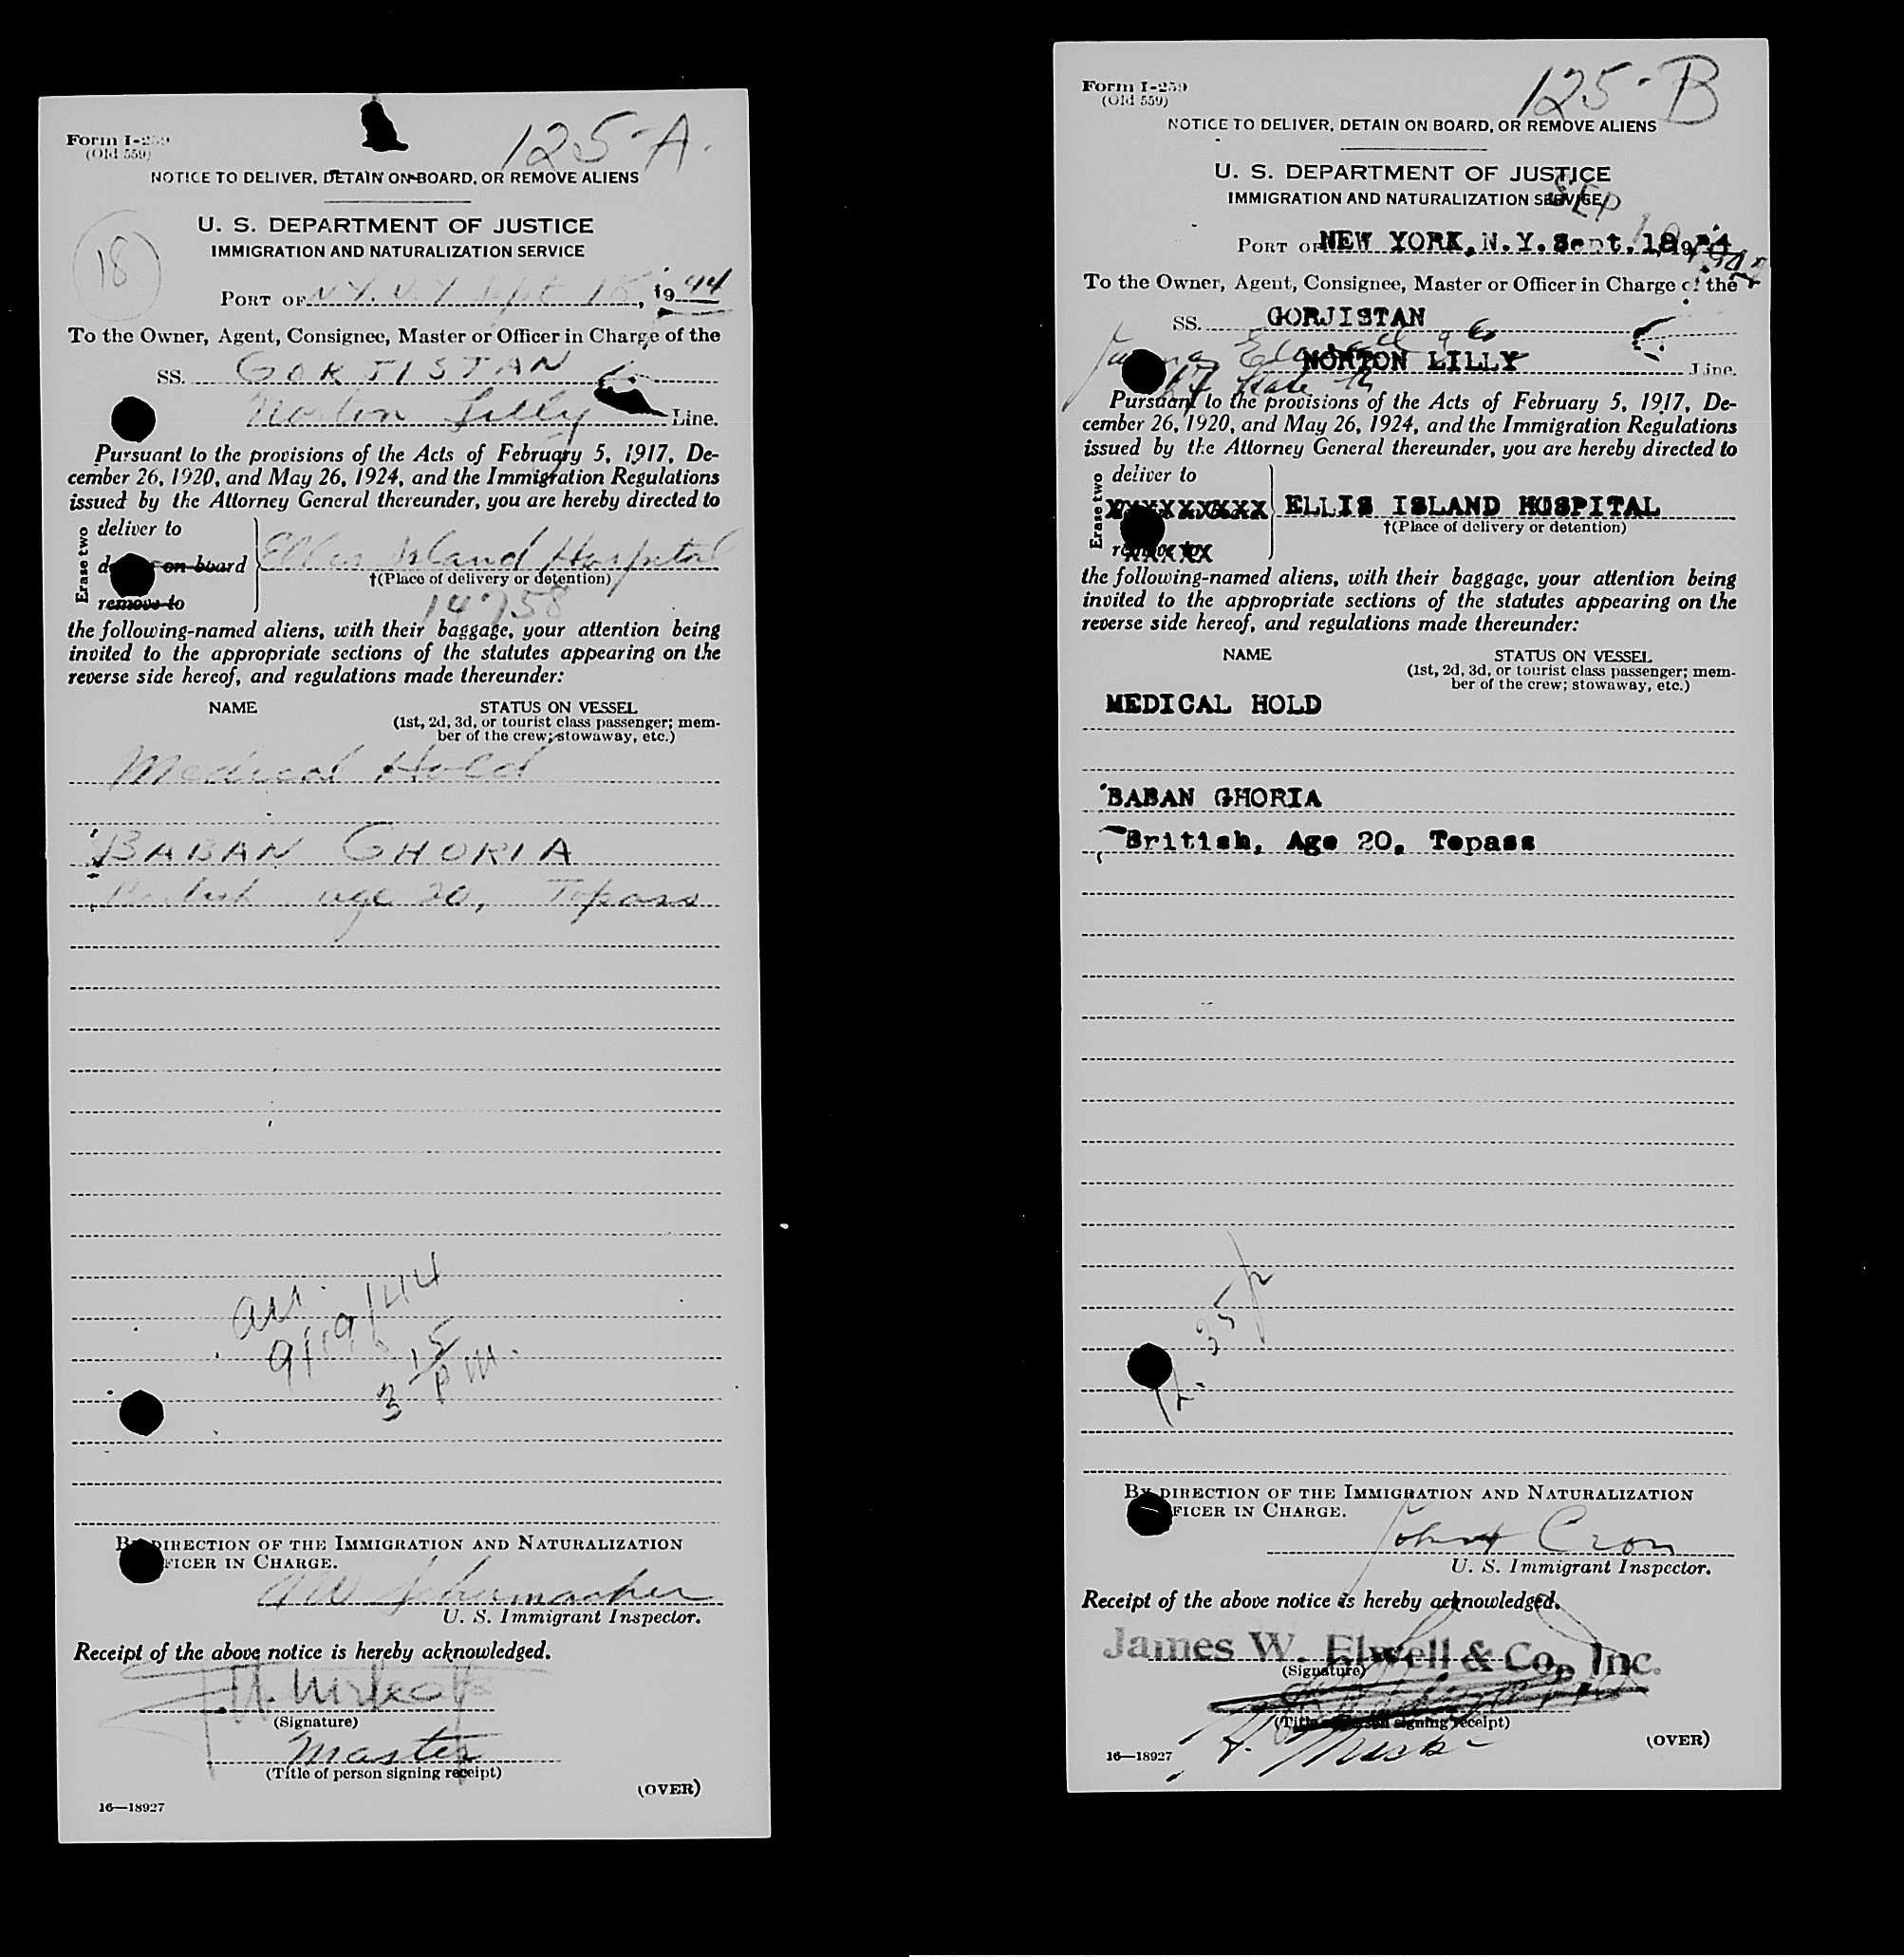 125-A.
Form I-259
(Old 559)
NOTICE TO DELIVER, DETAIN ON BOARD, OR REMOVE ALIENS
U. S. DEPARTMENT OF JUSTICE
IMMIGRATION AND NATURALIZATION SERVICE
18
PORT OF N.Y. N.Y Sept 18, 1944
To the Owner, Agent, Consignee, Master or Officer in Charge of the
SS. GORJISTAN
Norton Lilly Line.
Pursuant to the provisions of the Acts of February 5, 1917, De-
cember 26, 1920, and May 26, 1924, and the Immigration Regulations
issued by the Attorney General thereunder, you are hereby directed to
Erase two
deliver to
on board
remove to
Ellis Island Hospital
†(Place of delivery or detention)
14758
the following-named aliens, with their baggage, your attention being
invited to the appropriate sections of the statutes appearing on the
reverse side hereof, and regulations made thereunder:
NAME STATUS ON VESSEL
(1st, 2d, 3d, or tourist class passenger; mem-
ber of the crew; stowaway, etc.)
Medical Hold
BABAN GHORIA
British age 20, Topass
arr.
9/19/44
3 15 p m.
BY DIRECTION OF THE IMMIGRATION AND NATURALIZATION
OFFICER IN CHARGE.
A W Schumacher
U. S. Immigrant Inspector.
Receipt of the above notice is hereby acknowledged.
(Signature)
Master
(Title of person signing receipt)
(OVER)
16—18927
125-B
Form I-259
(Old 559)
NOTICE TO DELIVER, DETAIN ON BOARD, OR REMOVE ALIENS
U. S. DEPARTMENT OF JUSTICE
IMMIGRATION AND NATURALIZATION SERVICE
SEP
PORT OF NEW YORK, N.Y. Sept. 18, 1944
To the Owner, Agent, Consignee, Master or Officer in Charge of the
SS. GORJISTAN
NORTON LILLY Line.
17 State
Pursuant to the provisions of the Acts of February 5, 1917, De-
cember 26, 1920, and May 26, 1924, and the Immigration Regulations
issued by the Attorney General thereunder, you are hereby directed to
Erase two
deliver to
XXXXXXXXX
XXXXX
ELLIS ISLAND HOSPITAL
†(Place of delivery or detention)
the following-named aliens, with their baggage, your attention being
invited to the appropriate sections of the statutes appearing on the
reverse side hereof, and regulations made thereunder:
NAME STATUS ON VESSEL
(1st, 2d, 3d, or tourist class passenger; mem-
ber of the crew; stowaway, etc.)
MEDICAL HOLD
BABAN GHORIA
British, Age 20, Topass
12.35 p
BY DIRECTION OF THE IMMIGRATION AND NATURALIZATION
OFFICER IN CHARGE.
Cron
U. S. Immigrant Inspector.
Receipt of the above notice is hereby acknowledged.
James W. Elwell & Co., Inc.
(Signature)
(Title of person signing receipt)
(OVER)
16—18927